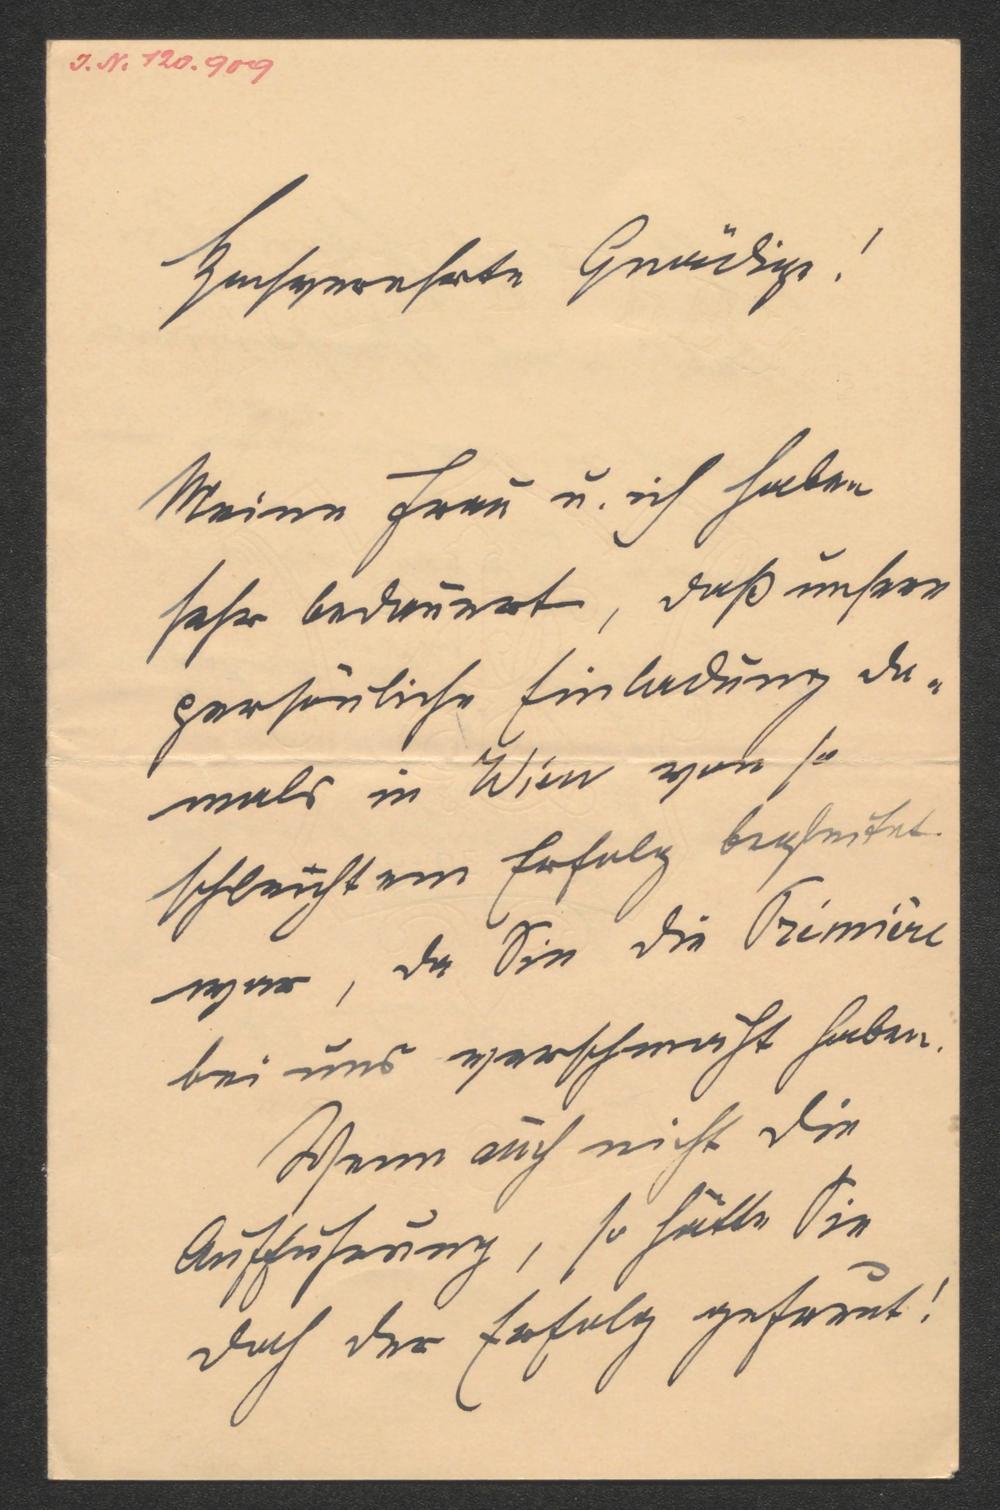 I. N. 120.909
Hochverehrte Gnädige!
Meine Frau u. ich haben
sehr bedauert, daß unsere
persönliche Einladung da-
mals in Wien von so
schlechtem Erfolg begleitet
war, da Sie die Première
bei uns verschmäht haben.
Wenn auch nicht die
Aufführung, so hätte Sie
doch der Erfolg gefreut!